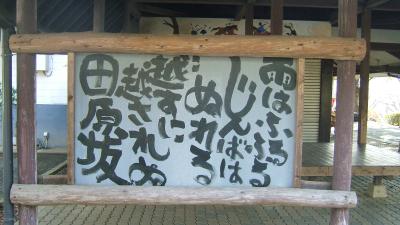 雨はふるふる
じんばは
ぬれる
越すに
越されぬ
田原坂